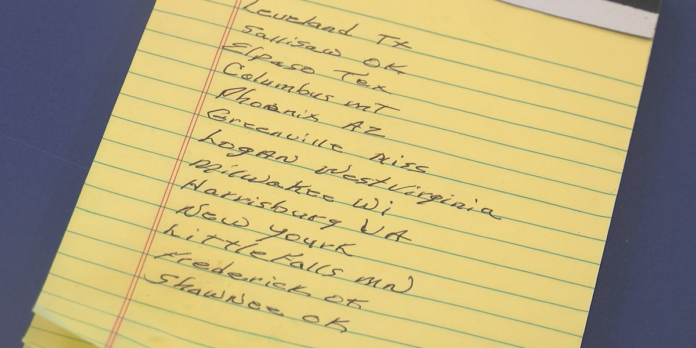 Leveland Tx
Sallisaw OK
Elpaso Tex
Columbus MT
Phoenix AZ
Greenville Miss
Logan West Virginia
Milwakee Wi
Harrisburg VA
New yourk
Little Falls MN
Frederick ok
Shawnee ok